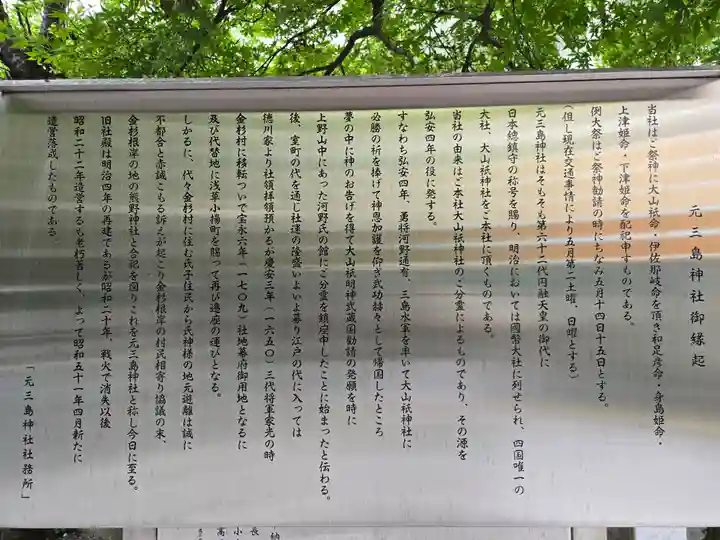 元三島神社御縁起
当社はご祭神に大山祇命・伊佐那岐命を頂き和足彦命・身島姫命・
上津姫命・下津姫命を配祀申すものである。
例大祭はご祭神勧請の時にちなみ五月十四日十五日とする。
(但し現在交通事情により五月第二土曜、日曜とする)
元三島神社はそもそも第六十二代円融天皇の御代に
日本總鎮守の称号を賜り、明治においては國幣大社に列せられ、四国唯一の
大社、大山祇神社をご本社に頂くものである。
当社の由来はご本社大山祇神社のご分霊によるものであり、その源を
弘安四年の役に発する。
すなわち弘安四年、勇将河野通有、三島水軍を率いて大山祇神社に
必勝の祈を捧げて神恩加護を仰ぎ武功赫々として帰国したところ
夢の中に神のお告げを得て大山祇明神武蔵国勧請の発願を時に
上野山中にあった河野氏の館にご分霊を鎮座申したことに始まったと伝わる。
後、室町の代を通し社運の隆盛いよいよ募り江戸の代に入っては
徳川家より社領拝領預かるが慶安三年(一六五〇)三代将軍家光の時
金杉村に移転ついで宝永六年(一七〇九)社地幕府御用地となるに
及び代替地に浅草小揚町を賜って再び遷座の運びとなる。
しかるに、代々金杉村に住む氏子住民から氏神様の地元遊離は誠に
不都合と赤誠こもる訴えが起こり金杉根岸の村民相寄り協議の末、
金杉根岸の地の熊野神社と合祀を図りこれを元三島神社と称し今日に至る。
旧社殿は明治四年の再建であるが昭和二十年、戦火で消失以後
昭和二十二年造営するも老朽著しく、よって昭和五十一年四月新たに
造營落成したものである。
「元三島神社社務所」
納
長
小
高